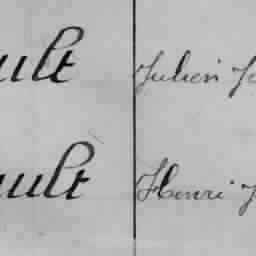 ult Julien J
ault Henri J